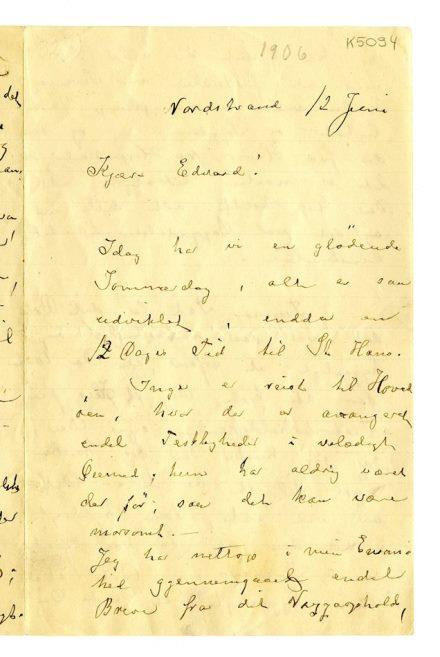 1906
K5094
Nordstrand 12 Juni
Kjære Edvard!
Idag har vi en glödende
Sommerdag, alt er saa
udviklet, endda en
12 Dages Tid til St Hans.
Inger er reist til Hoved
öen, hvor der er arrangeret
endel Festligheder i veldædigt
Öiemed, hun har aldrig været
der för, saa det kan være
morsomt. —
Jeg har nettop i min Ensom
hed gjennemgaaet endel
Breve fra dit opphold,